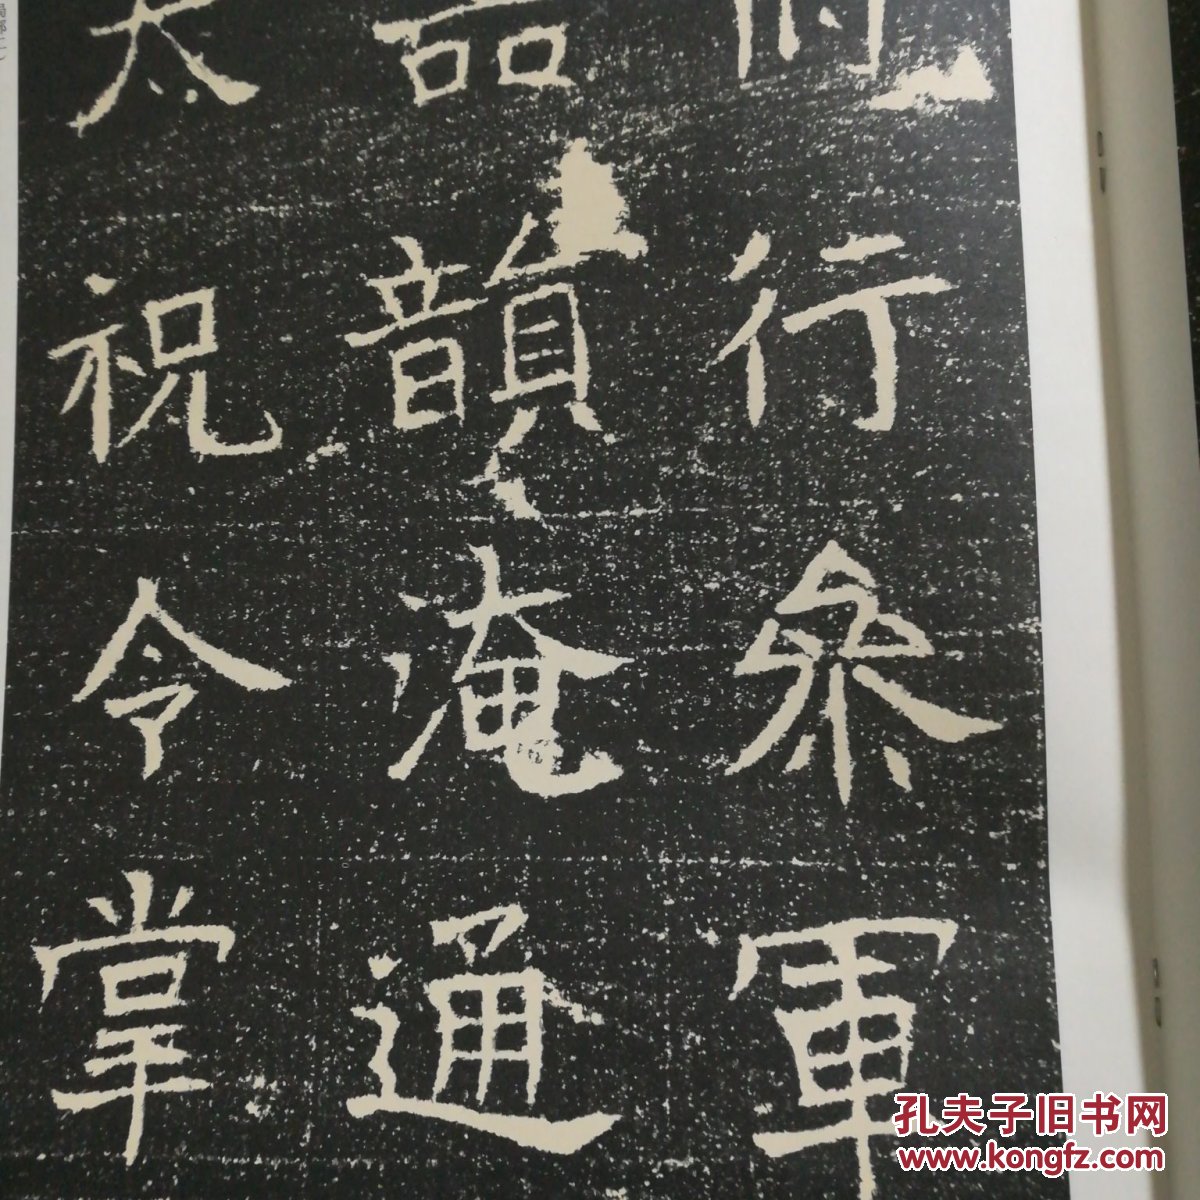 府行參軍
器韻淹通
太祝令掌
孔夫子旧书网
www.kongfz.com